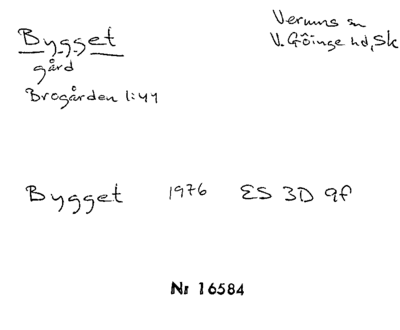 Bygget
gård
Brogården 1:44
Verums sn
V. Göinge hd, Sk
Bygget 1976 ES 3D 9f
Nr 16584